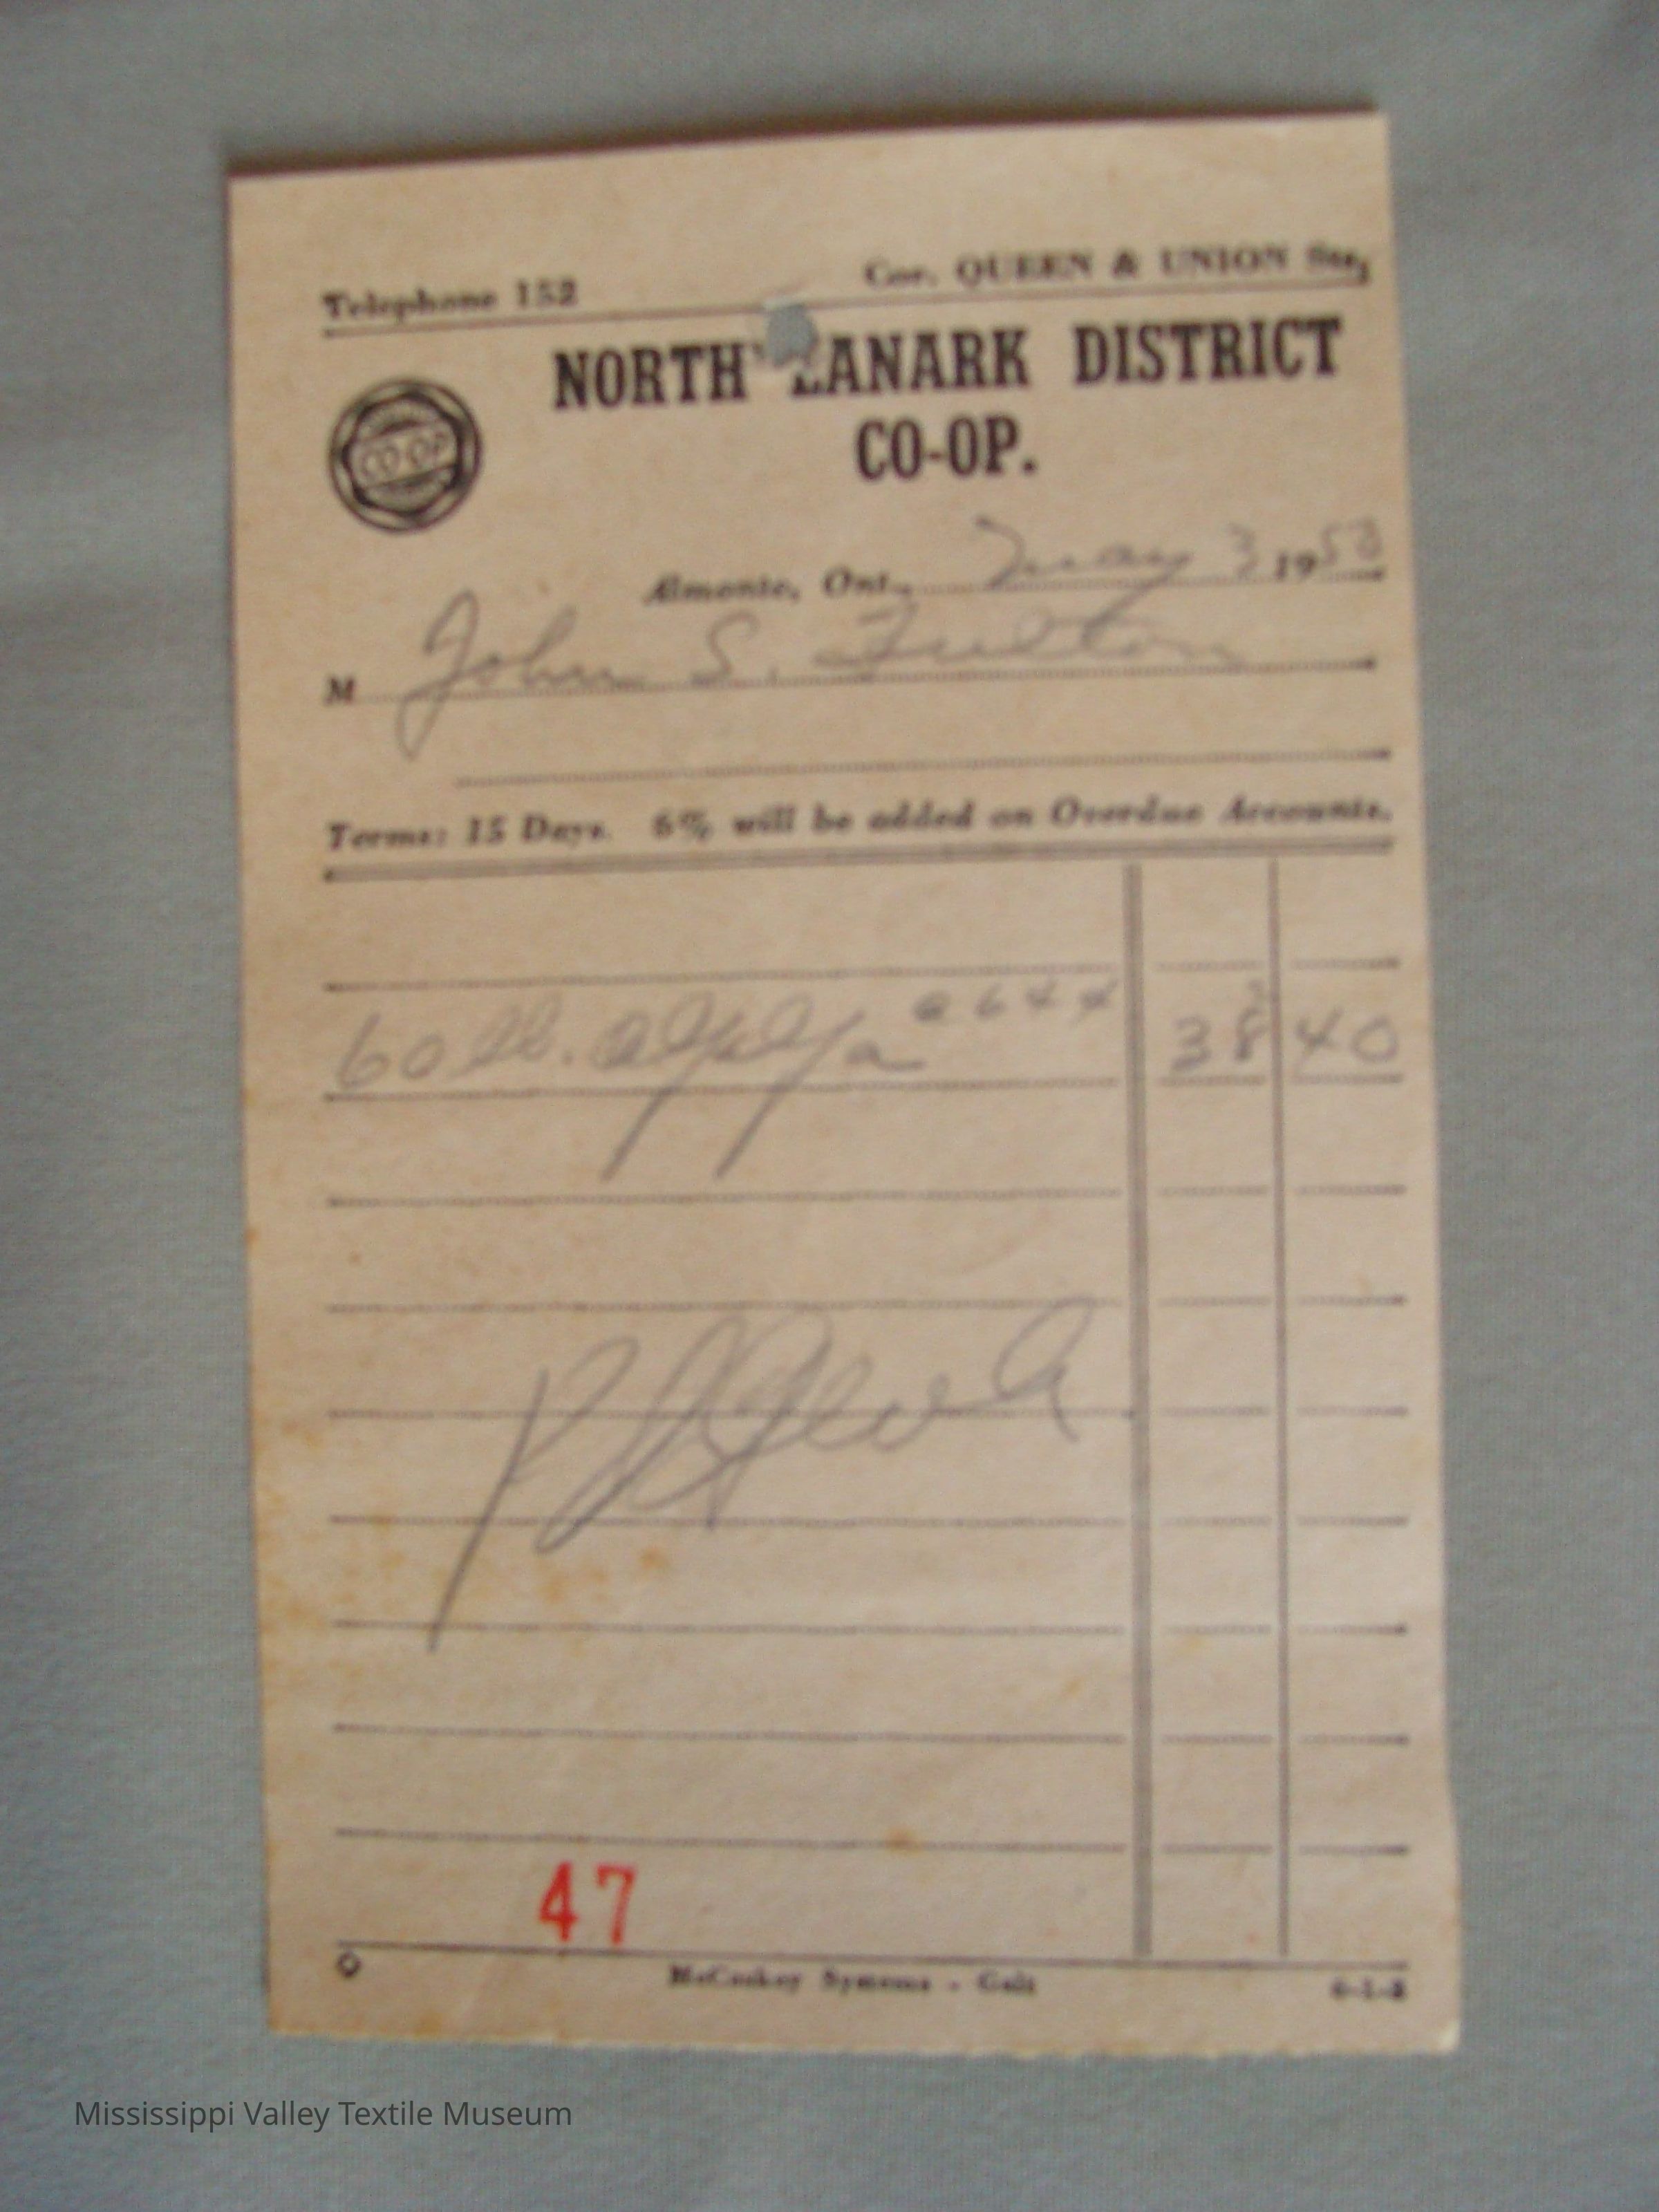 Telephone 152 Cor. QUEEN & UNION Sts,
NORTH LANARK DISTRICT
CO-OP.
CO-OP
Almonte, Ont., May 3 1953
M John S. Fulton
Terms: 15 Days. 6% will be added on Overdue Accounts.
60 lb. alfalfa @ 64 38 40
47
McCaskey Systems - Galt 6-1-8
Mississippi Valley Textile Museum